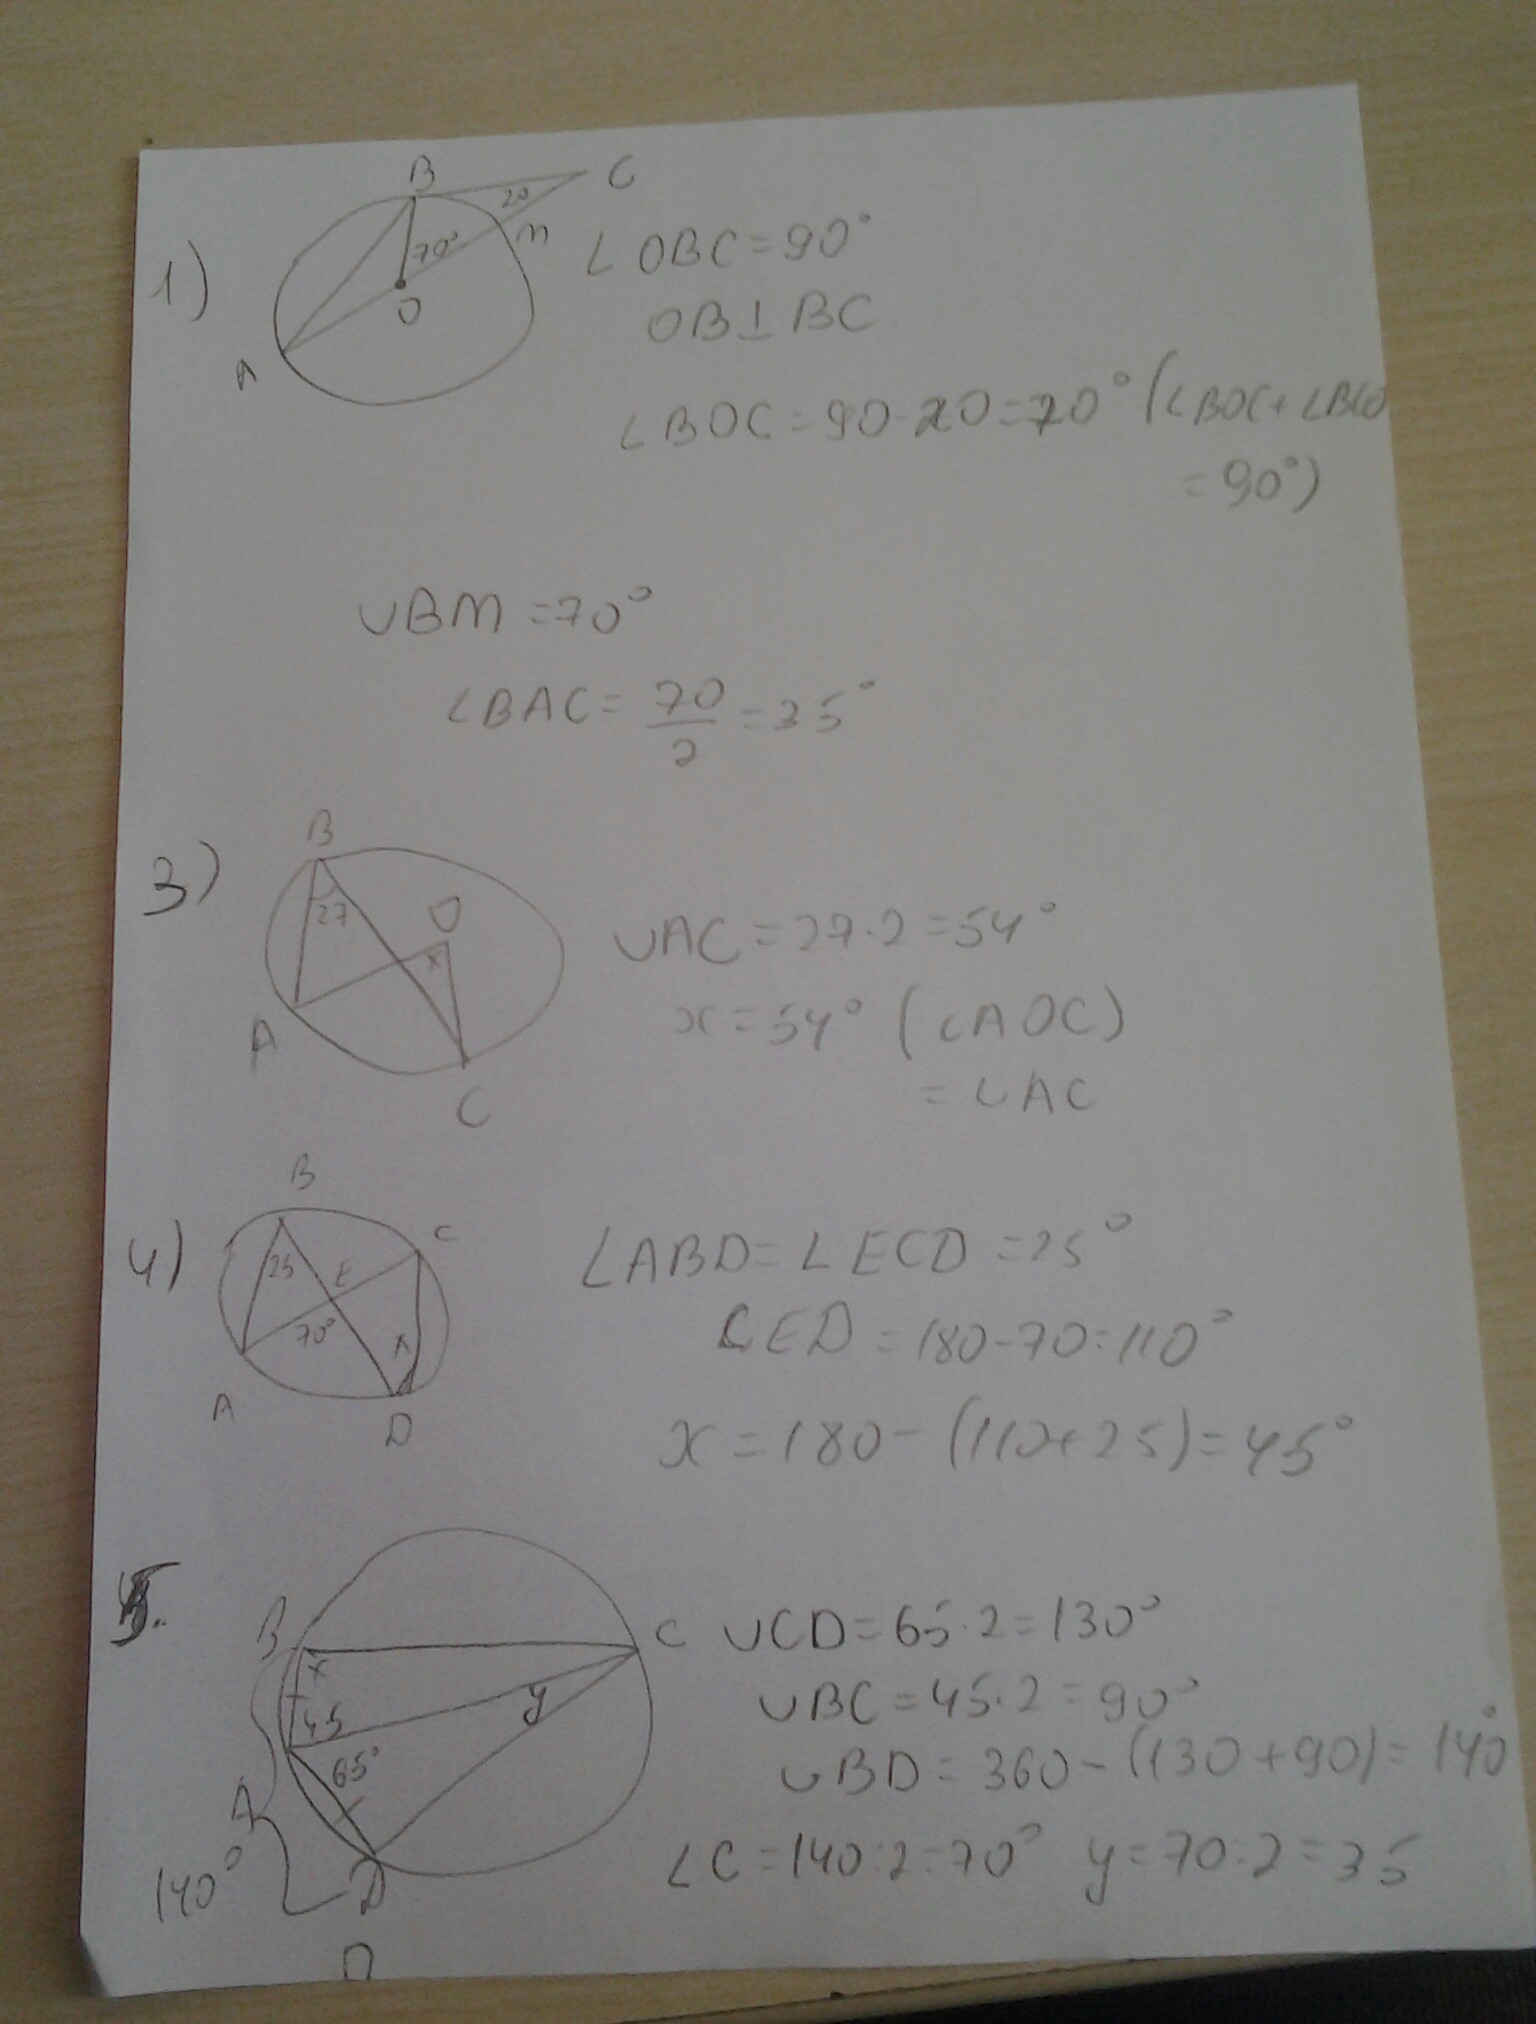 1)
B
C
20
M
70°
O
A
∠OBC=90°
OB⊥BC
∠BOC=90-20=70° (∠BOC+∠BCO
=90°)
∪BM=70°
∠BAC=70/2=35°
3)
B
27
O
x
A
C
∪AC=27·2=54°
x=54° (∠AOC)
=∪AC
4)
B
C
25
E
70°
x
A
D
∠ABD=∠ECD=25°
CED=180-70=110°
x=180-(110+25)=45°
5.
B
C
x
45
y
65°
A
140°
D
∪CD=65·2=130°
∪BC=45·2=90°
∪BD=360-(130+90)=140°
∠C=140:2=70° y=70:2=35